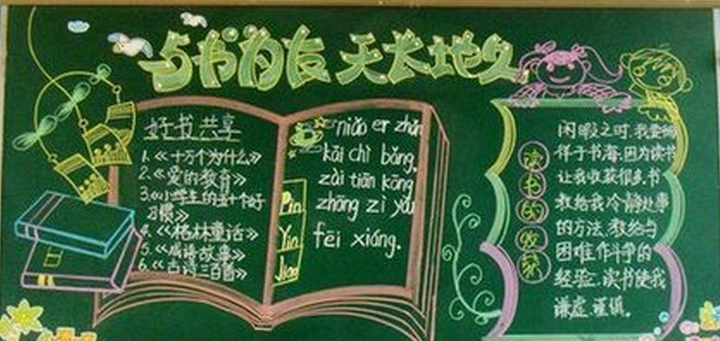 与书为友 天长地久
好书共享
1.《十万个为什么》
2.《爱的教育》
3.《小学生的五十个好
习惯》
4.《格林童话》
5.《成语故事》
6.《古诗三百首》
niǎo er zhǎn
kāi chì bǎng,
zài tiān kōng
zhōng zì yóu
fēi xiáng.
Pin
Yin
Jiao
读书的收获
闲暇之时,我喜徜
徉于书海,因为读书
让我收获很多.书
教给我冷静处事
的方法,教给与
困难作斗争的
经验.读书使我
谦虚,谨慎.